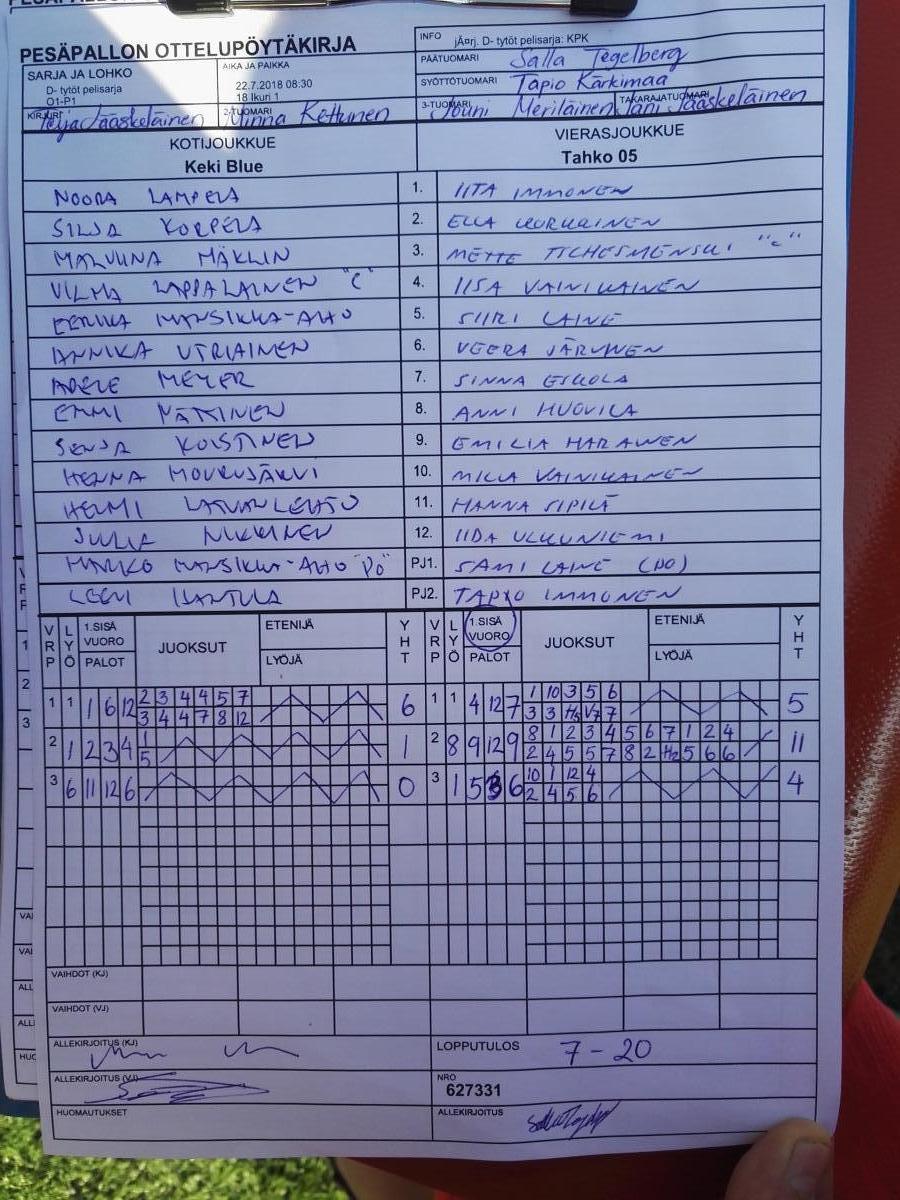 PESÄPALLON OTTELUPÖYTÄKIRJA
INFO jÄ¤rj. D- tytöt pelisarja: KPK
PÄÄTUOMARI Salla Tegelberg
SARJA JA LOHKO
D- tytöt pelisarja
O1-P1
AIKA JA PAIKKA
22.7.2018 08:30
18 Ikuri 1
SYÖTTÖTUOMARI Tapio Kärkimaa
KIRJURI Jääskeläinen
2-TUOMARI Minna Kettunen
3-TUOMARI Jouni Meriläinen
TAKARAJATUOMARI Jani Jääskeläinen
KOTIJOUKKUE
Keki Blue
VIERASJOUKKUE
Tahko 05
NOORA LAMPELA 1. IITA IMMONEN
SILJA KORPELA 2. ELLA
MALVIINA MÄKLIN 3. METTE "C"
VILMA LAPPALAINEN "C" 4. IISA VAINIKAINEN
EERIKA MANSIKKA-AHO 5. SIIRI LAINE
ANNIKA UTRIAINEN 6. VEERA JÄRVINEN
ADELE MEYER 7. SINNA ESKOLA
EMMI 8. ANNI HUOVILA
SENJA KOISTINEN 9. EMILIA
HENNA 10. MILLA VAINIKAINEN
HELMI LATVANLEHTO 11. HANNA SIPILÄ
JULIA NIKKINEN 12. IIDA ULKUNIEMI
MARKO MANSIKKA-AHO "PÖ" PJ1. SAMI LAINE (PO)
LEENI PJ2. TAPIO IMMONEN
VRP LYÖ 1.SISÄ VUORO PALOT JUOKSUT ETENIJÄ LYÖJÄ YHT VRP LYÖ 1.SISÄ VUORO PALOT JUOKSUT ETENIJÄ LYÖJÄ YHT
1 1 1 6 12 2 3 4 4 5 7 6 1 1 4 12 7 1 10 3 5 6 5
3 4 4 7 8 12 3 3 7
2 1 2 3 4 1 1 2 8 9 12 9 8 1 2 3 4 5 6 7 1 2 4 11
5 2 4 5 5 7 8 2 5 6 6
3 6 11 12 6 0 3 1 5 6 10 1 12 4 4
2 4 5 6
VAIHDOT (KJ)
VAIHDOT (VJ)
ALLEKIRJOITUS (KJ)
LOPPUTULOS 7 - 20
ALLEKIRJOITUS (VJ)
NRO
627331
HUOMAUTUKSET
ALLEKIRJOITUS